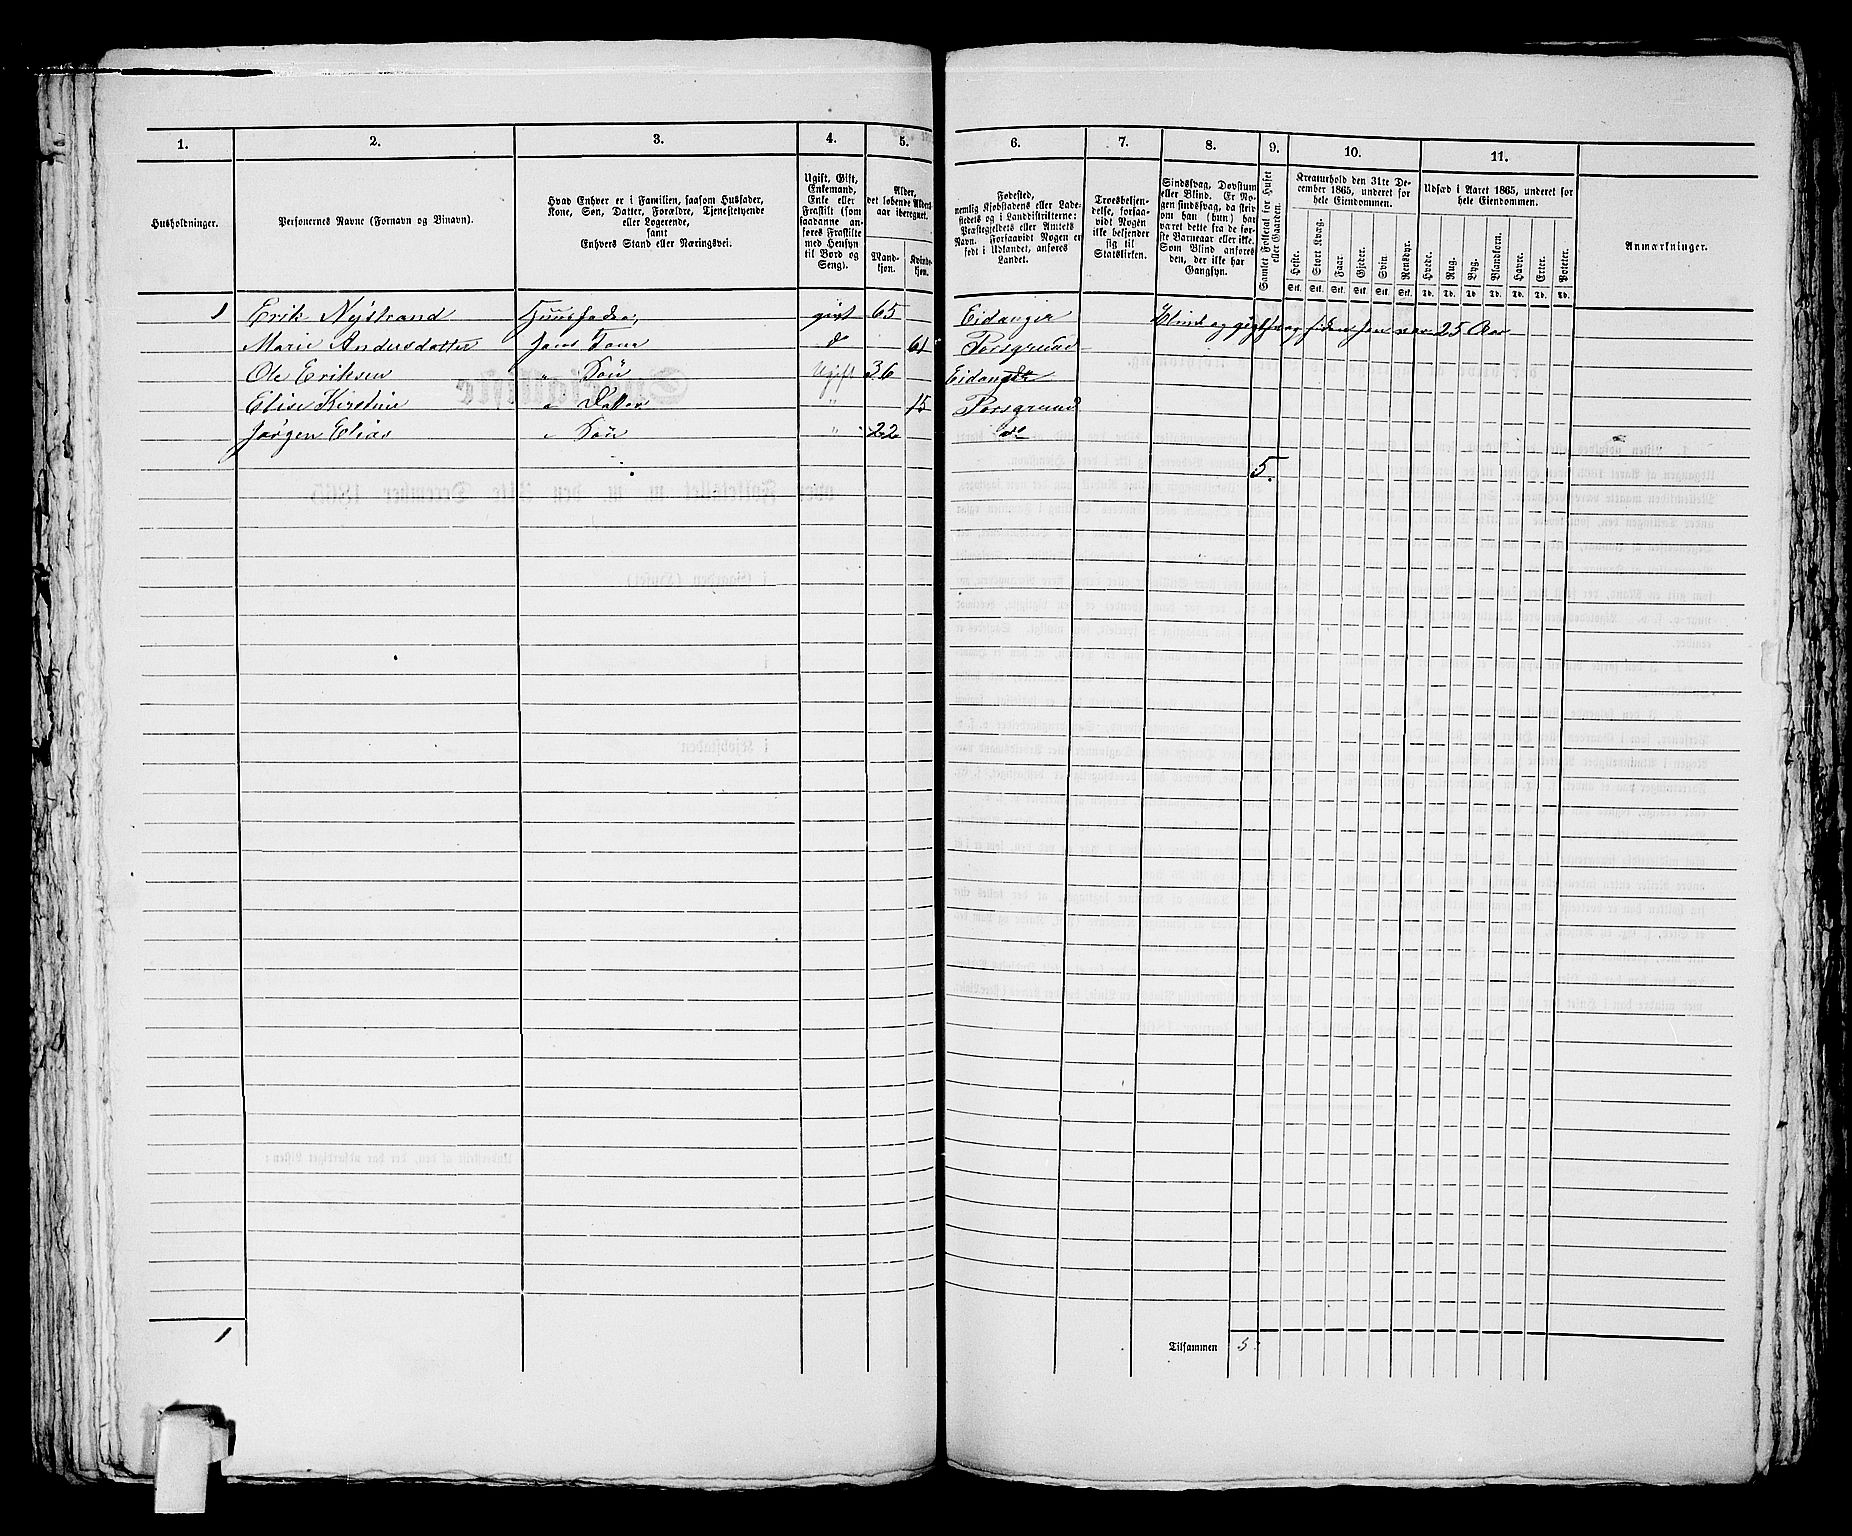 1. 2. 3. 4. 5. 6. 7. 8. 9. 10. 11.
Husholdninger.
Personernes Navne (Fornavn og Binavn).
Hvad Enhver er i Familien, saasom Husfader,
Kone, Søn, Datter, Forældre, Tjenestetyende
eller Logerende,
samt
Enhvers Stand eller Næringsvei.
Ugift, Gift,
Enkemand,
Enke eller
Fraskilt (som
saadanne an-
føres Fraskilte
med Hensyn
til Bord og
Seng).
Alder,
det løbende Alders-
aar iberegnet.
Mand-
kjøn.
Kvinde-
kjøn.
Fødested,
nemlig Kjøbstadens eller Lade-
stedets og i Landdistrikterne:
Præstegjeldets eller Amtets
Navn. Forsaavidt Nogen er
født i Udlandet, anføres
Landet.
Troesbekjen-
delse, forsaa-
vidt Nogen
ikke bekjender
sig til
Statskirken.
Sindssvag, Døvstum
eller Blind. Er No-
gen sindssvag, da skriv
om han (hun) har
været dette fra de før-
ste Barneaar eller ikke.
Som Blind anføres
den, der ikke har
Gangsyn.
Samlet Folketal for Huset
eller Gaarden.
Kreaturhold den 31te De-
cember 1865, underet for
hele Eiendommen.
Heste. Stort Kvæg. Faar. Gjeder. Svin. Rensdyr.
Stk. Stk. Stk. Stk. Stk. Stk.
Udsæd i Aaret 1865, underet for
hele Eiendommen.
Hvede. Rug. Byg. Blandkorn. Havre. Erter. Poteter.
Td. Td. Td. Td. Td. Td. Td.
Anmærkninger.
1 Erik Nystrand Huusfader, gift 65 Eidanger Blind og gigtsvag siden han var 25 Aar
Marie Andersdatter hans Kone d 61 Porsgrund
Ole Eriksen " Søn Ugift 36 Eidanger
Elise Kirstine " Datter " 15 Porsgrund
Jørgen Elias " Søn " 22 do
5.
1 Tilsammen 5